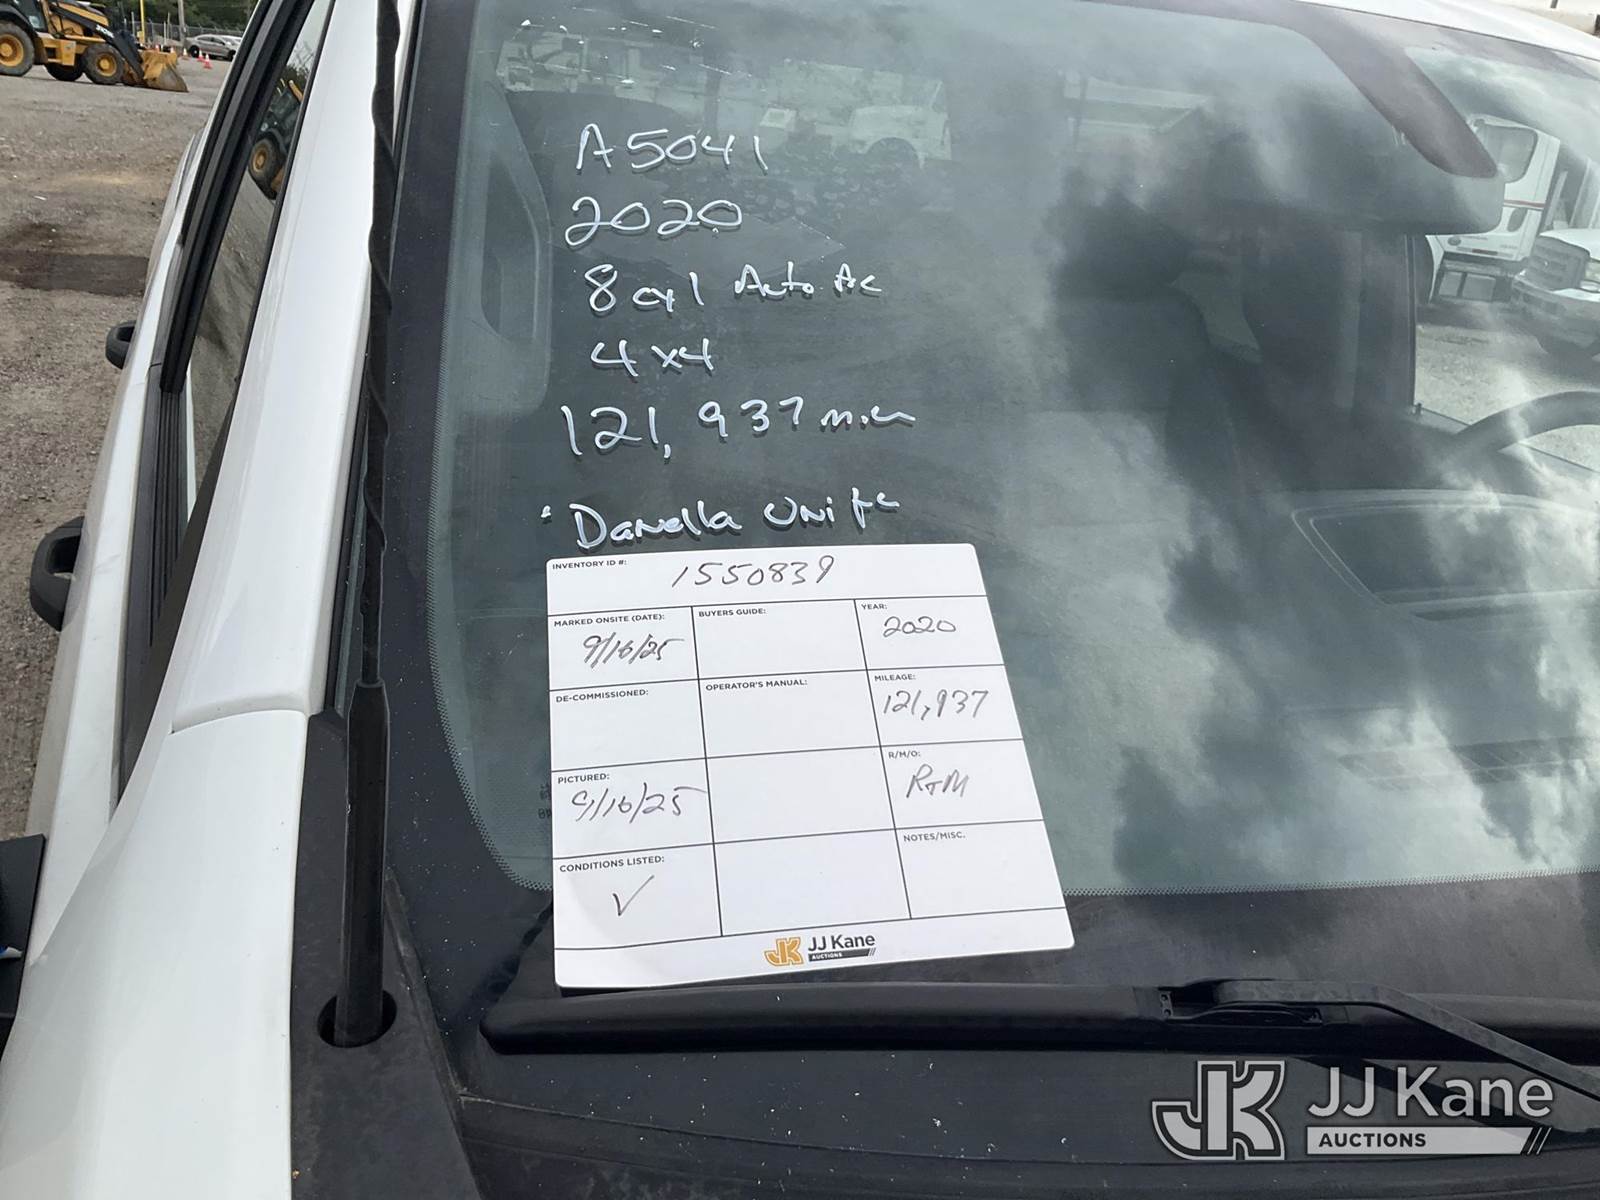 A5041
2020
8 cyl Auto AC
4x4
121,937 miles
Danella Unit
INVENTORY ID #: 1550839
MARKED ONSITE (DATE): 9/16/25
BUYERS GUIDE:
YEAR: 2020
DE-COMMISSIONED:
OPERATOR'S MANUAL:
MILEAGE: 121,937
PICTURED: 9/16/25
R/M/O: R+M
CONDITIONS LISTED: ✓
NOTES/MISC.
JK JJ Kane
AUCTIONS
JK JJ Kane
AUCTIONS